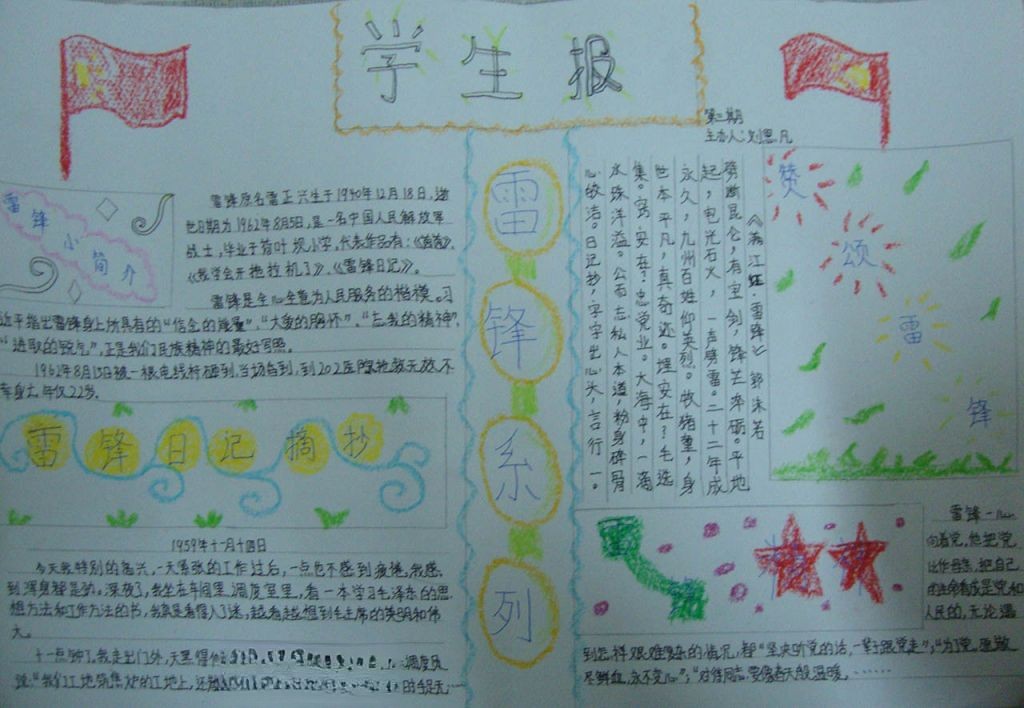 学生报
第二期
主办人:刘思凡
雷锋小简介
雷锋原名雷正兴生于1940年12月18日,逝
世日期为1962年8月5日,是一名中国人民解放军
战士,毕业于荷叶坝小学,代表作品有:《茵茵》、
《我学会开拖拉机了》、《雷锋日记》。
雷锋是全心全意为人民服务的楷模。习
近平指出雷锋身上所具有的“信念的能量”、“大爱的胸怀”、“忘我的精神”、
“进取的锐气”,正是我们民族精神的最好写照。
1962年8月15日被一根电线杆砸到,当场昏到,到202医院抢救无效不
幸身亡,年仅22岁。
雷锋日记摘抄
1959年十一月十四日
今天我特别的高兴,一天紧张的工作过后,一点也不感到疲倦,我感
到浑身都是劲。深夜了,我坐在车间里调度室里,看一本学习毛泽东的思
想方法和工作方法的书,我真是看得入了迷,越看越想到毛主席的英明和伟
大。
十一点钟了,我走出门外,天黑得
调度员
说:“我们工地筑焦炉的工地上,还
雷锋系列
《满江红·雷锋》 郭沫若
劈断昆仑,有宝剑,锋芒淬砺。平地
起,电光石火,一声劈雷。二十二年成
永久,九州百姓仰英烈。牧猪童,身
世本平凡,真奇迹。理安在?毛选
集。窍安在?忠党业。大海中,一滴
水珠洋溢。公而忘私人本道,粉身碎骨
心皎洁。日记抄,字字出心头,言行一。
赞颂雷锋
雷锋一心
向着党,他把党
比作母亲,把自己
的生命看成是党和
人民的,无论遇
到怎样艰难的情况,都“坚决听党的话,一辈子跟党走”;“为了党,愿
尽鲜血,永不变心”;“对待同志要像春天般温暖,……